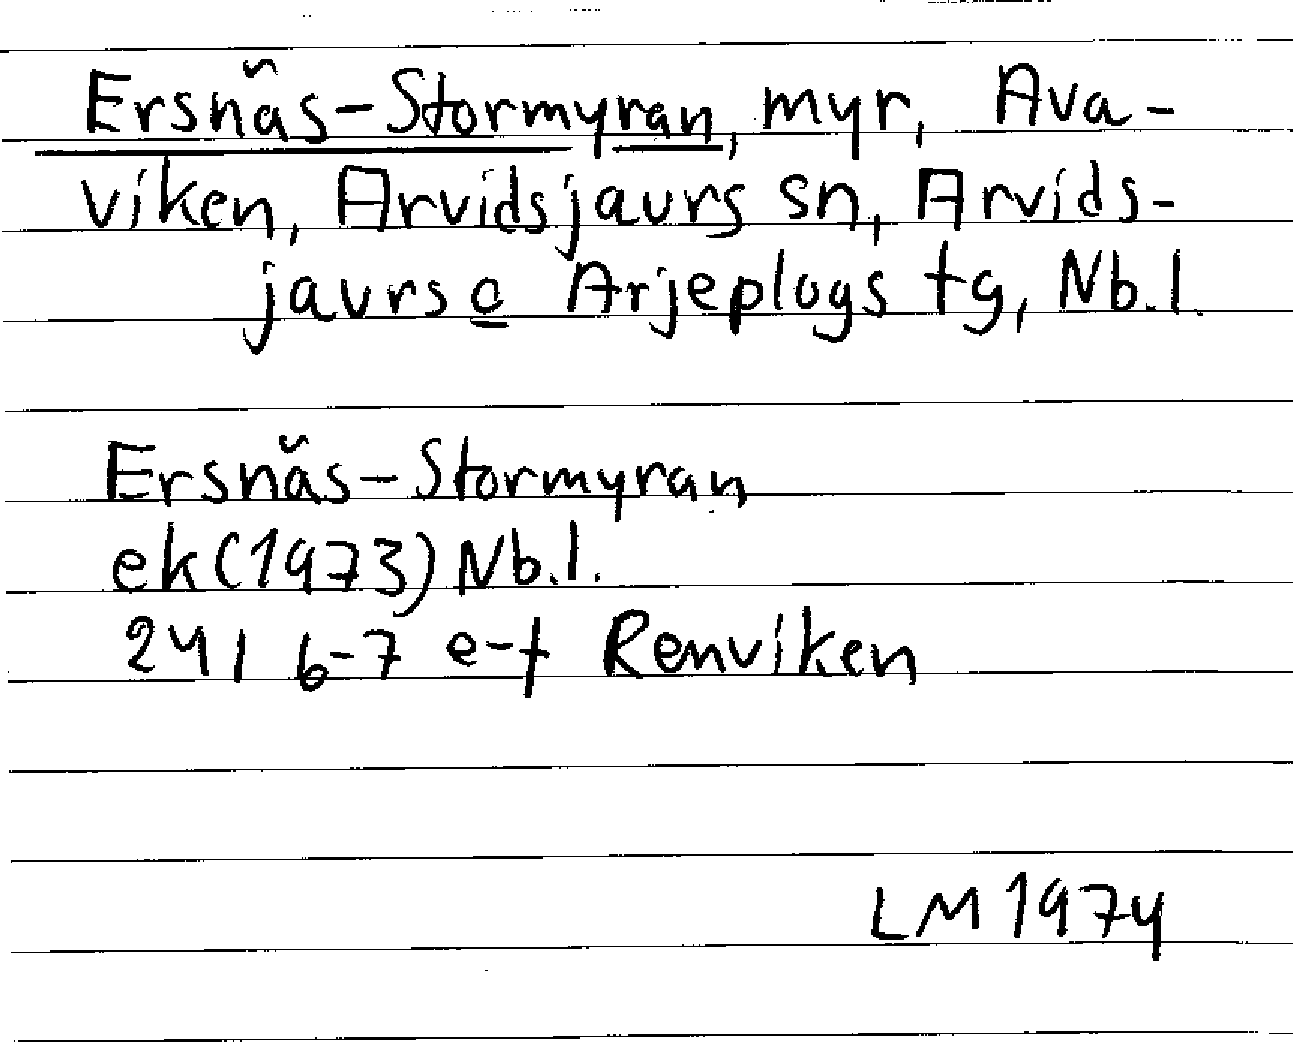 Ersnäs-Stormyran, myr, Ava-
viken, Arvidsjaurs sn, Arvids-
jaurs o Arjeplogs tg, Nb.l.
Ersnäs-Stormyran
ek(1973) Nb.l.
24I 6-7 e-f Renviken
LM 1974